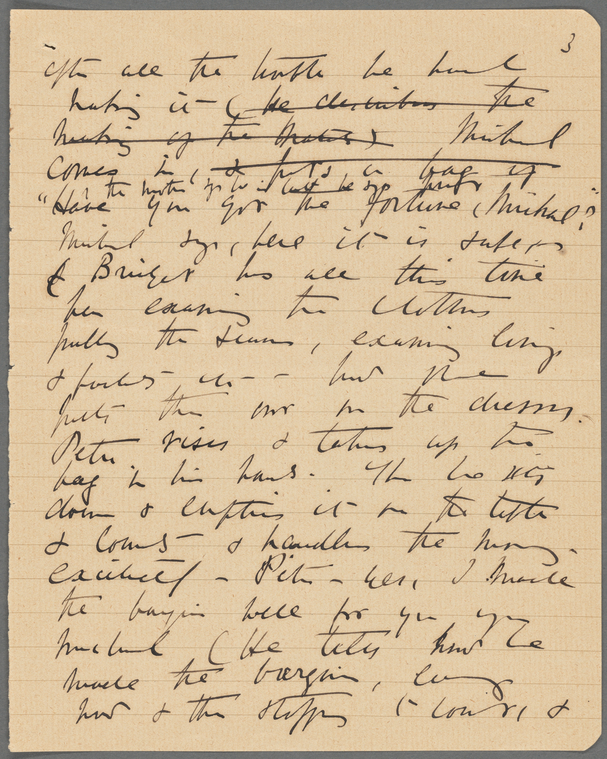 3
after all the trouble he had
making it (he describes the
making of the match) Michael
comes in, & puts a bag of
the mother says to him last he says
"Have you got the fortune, Michael?"
Michael says, here it is safe,
& Bridget has all this time
been examining the clothes
pulling the seams, examining lining
& pockets etc - and she
puts them over on the dresser.
Peter rises & takes up the
bag in his hands. Then he sits
down & empties it on the table
& counts & handles the money
excitedly - Peter - yes, I made
the bargain well for you
Michael (He tells how he
made the bargain,
now & then stopping to count, &